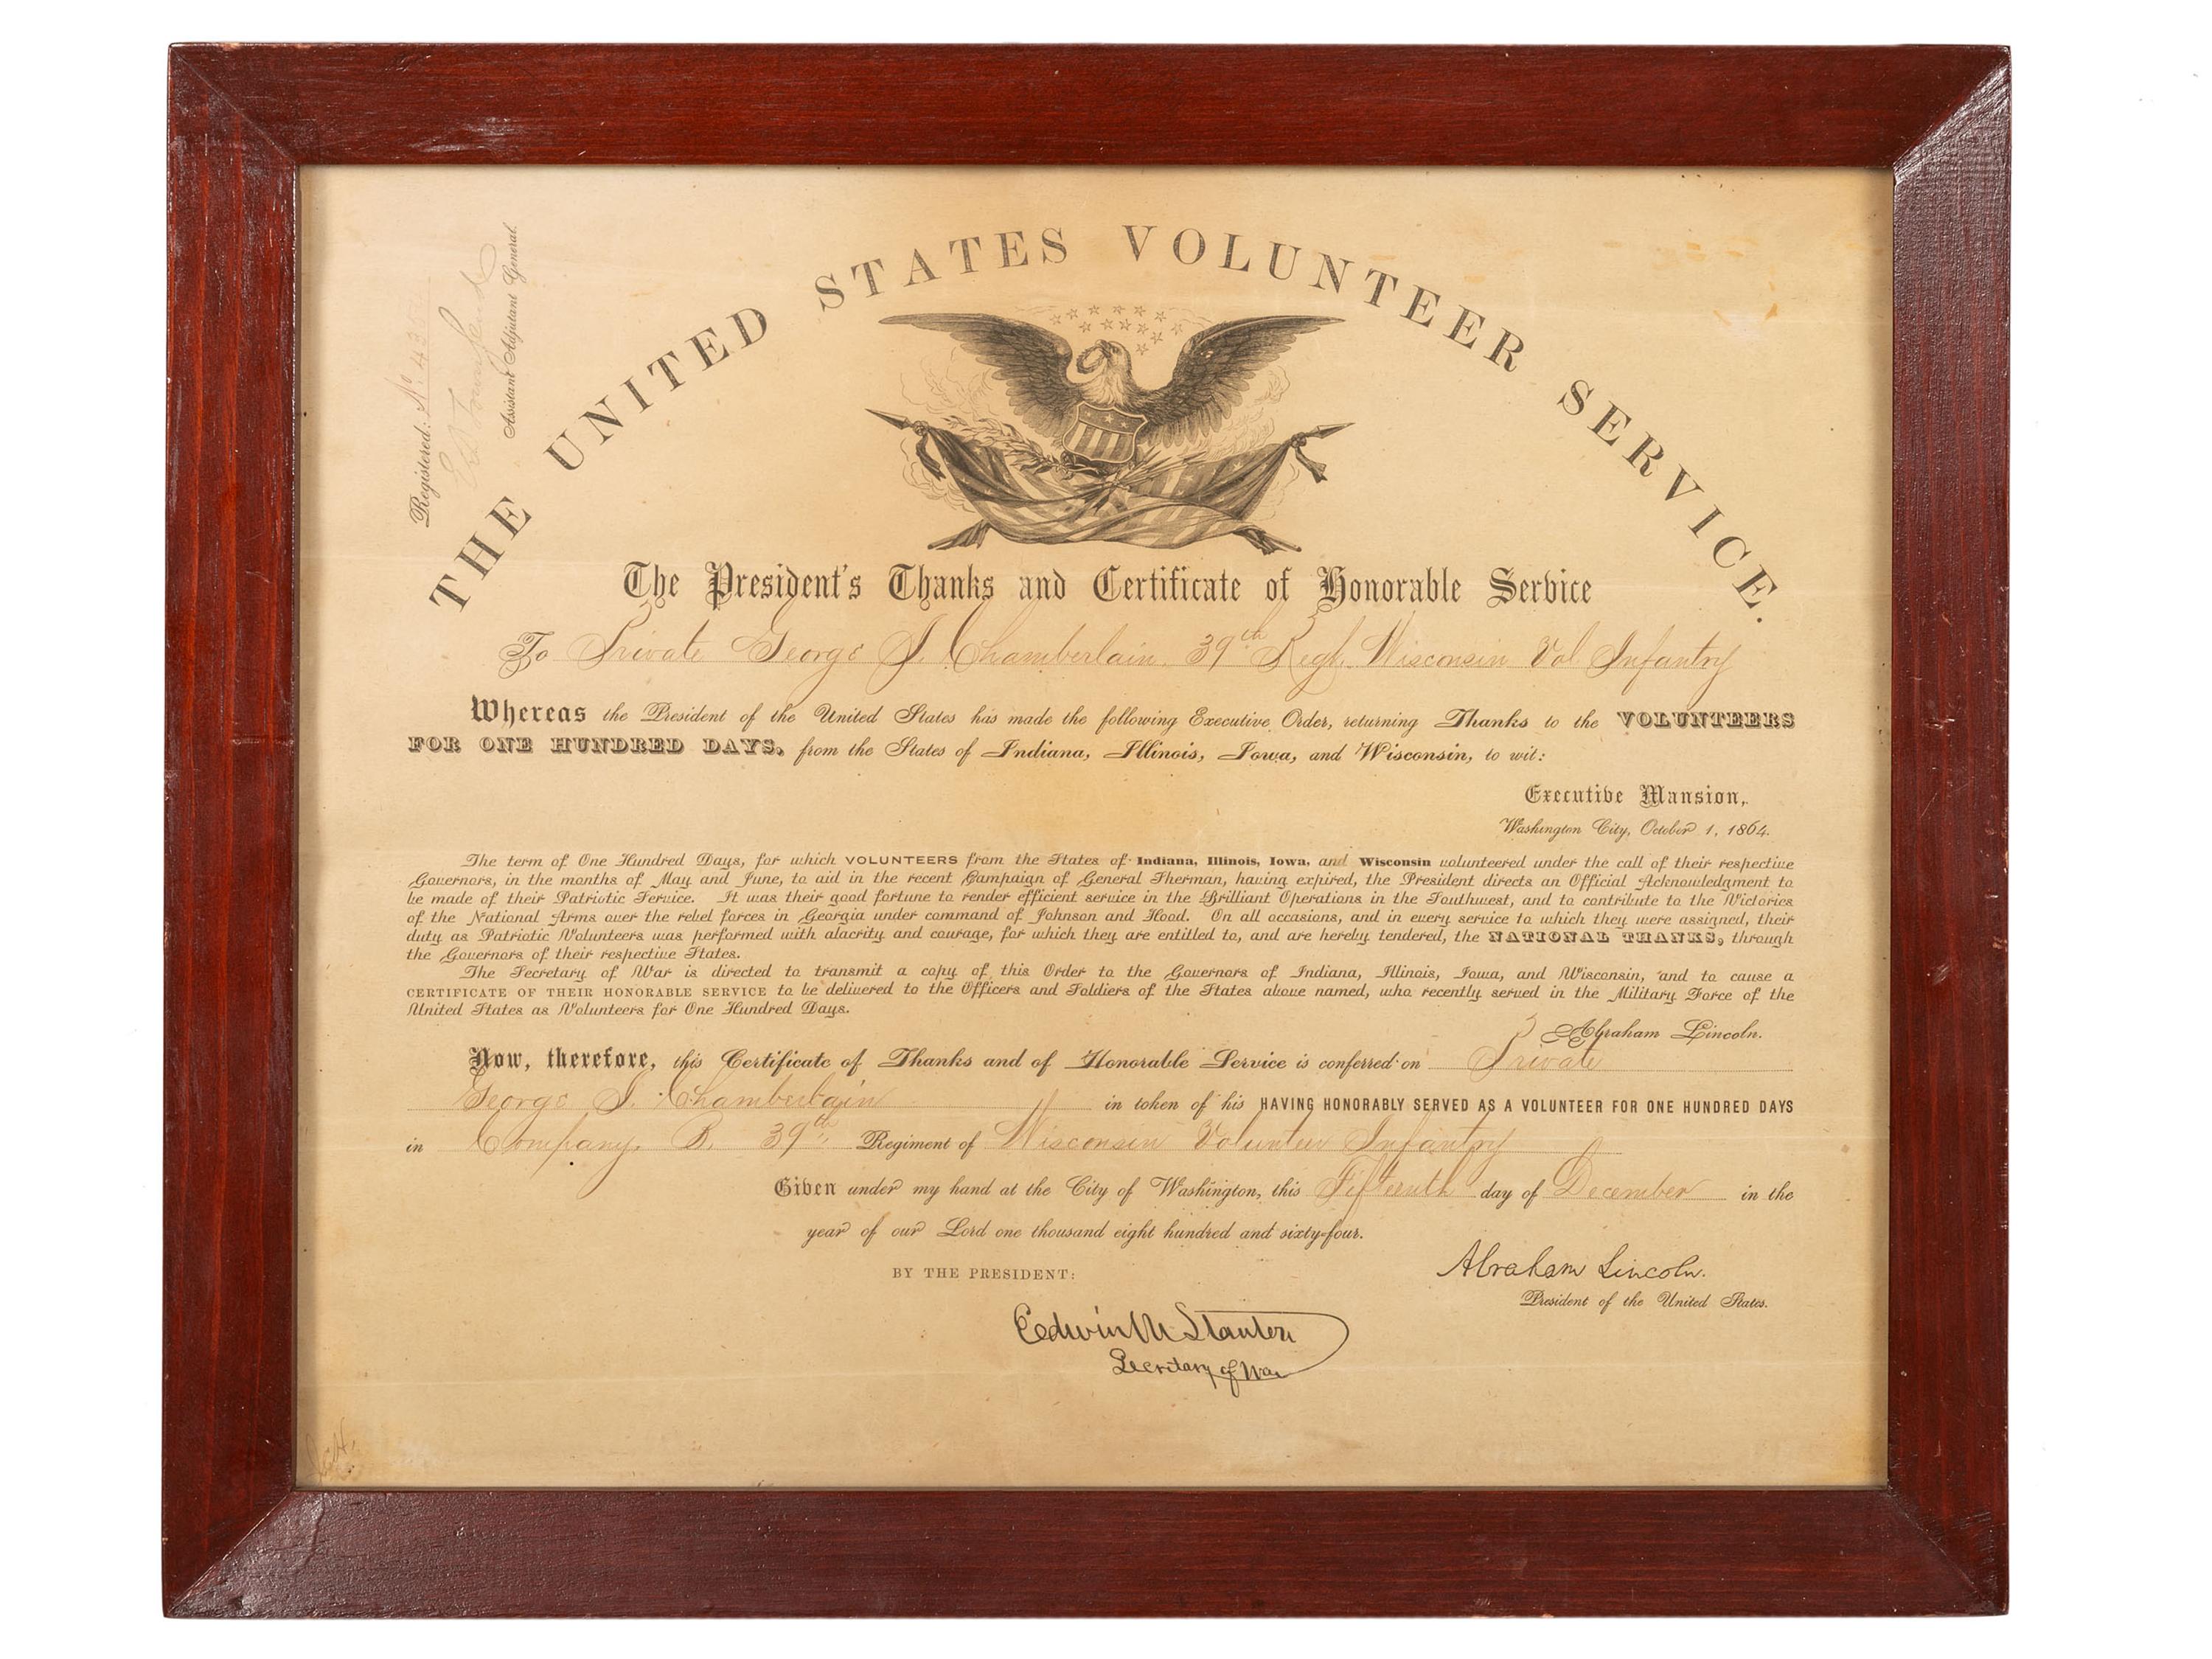 THE UNITED STATES VOLUNTEER SERVICE.
Registered: No 43
Assistant Adjutant General.
The President's Thanks and Certificate of Honorable Service
To Private George J. Chamberlain. 39th Regt. Wisconsin Vol Infantry
Whereas the President of the United States has made the following Executive Order, returning Thanks to the VOLUNTEERS
FOR ONE HUNDRED DAYS, from the States of Indiana, Illinois, Iowa, and Wisconsin, to wit:
Executive Mansion,
Washington City, October 1, 1864.
The term of One Hundred Days, for which VOLUNTEERS from the States of Indiana, Illinois, Iowa, and Wisconsin volunteered under the call of their respective
Governors, in the months of May and June, to aid in the recent Campaign of General Sherman, having expired, the President directs an Official Acknowledgment to
be made of their Patriotic Service. It was their good fortune to render efficient service in the Brilliant Operations in the Southwest, and to contribute to the Victories
of the National Arms over the rebel forces in Georgia under command of Johnson and Hood. On all occasions, and in every service to which they were assigned, their
duty as Patriotic Volunteers was performed with alacrity and courage, for which they are entitled to, and are hereby tendered, the NATIONAL THANKS, through
the Governors of their respective States.
The Secretary of War is directed to transmit a copy of this Order to the Governors of Indiana, Illinois, Iowa, and Wisconsin, and to cause a
CERTIFICATE OF THEIR HONORABLE SERVICE to be delivered to the Officers and Soldiers of the States above named, who recently served in the Military Force of the
United States as Volunteers for One Hundred Days.
Abraham Lincoln.
Now, therefore, this Certificate of Thanks and of Honorable Service is conferred on Private
George J. Chamberlain in token of his HAVING HONORABLY SERVED AS A VOLUNTEER FOR ONE HUNDRED DAYS
in Company, B. 39th Regiment of Wisconsin Volunteer Infantry
Given under my hand at the City of Washington, this Fifteenth day of December in the
year of our Lord one thousand eight hundred and sixty-four.
BY THE PRESIDENT:
Abraham Lincoln.
President of the United States.
Edwin M Stanton
Secretary of War